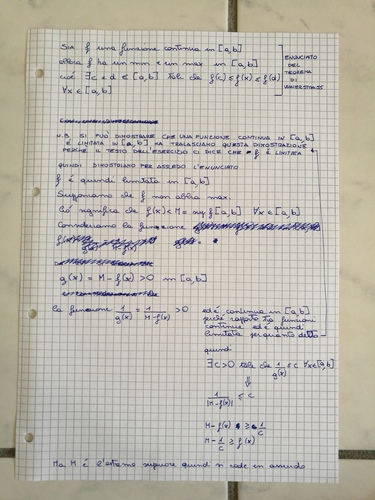 Sia f una funzione continua in [a,b]
allora f ha un min e un max in [a,b]
cioè ∃c e d ∈ [a,b] tale che f(c) ≤ f(x) ≤ f(d)
∀x ∈ [a,b]
ENUNCIATO
DEL
TEOREMA
DI
WEIERSTRASS
N.B. SI PUÒ DIMOSTRARE CHE UNA FUNZIONE CONTINUA IN [a,b]
È LIMITATA IN [a,b] MA TRALASCIAMO QUESTA DIMOSTRAZIONE
PERCHÉ IL TESTO DELL'ESERCIZIO CI DICE CHE f È LIMITATA
QUINDI DIMOSTRIAMO PER ASSURDO L'ENUNCIATO
f è quindi limitata in [a,b]
Supponiamo che f non abbia max.
Ciò significa che f(x) < M = sup f [a,b] ∀x ∈ [a,b]
Consideriamo la funzione
g(x) = M - f(x) > 0 in [a,b]
la funzione 1/g(x) = 1/(M-f(x)) > 0
ed è continua in [a,b]
perché rapporto tra funzioni
continue ed è quindi
limitata per quanto detto
quindi
∃ C > 0 tale che 1/g(x) ≤ C ∀x ∈ [a,b]
⇓
1/|M-f(x)| ≤ C
M - f(x) ≥ 1/C
M - 1/C ≥ f(x)
Ma M è l'estremo superiore quindi si cade in assurdo